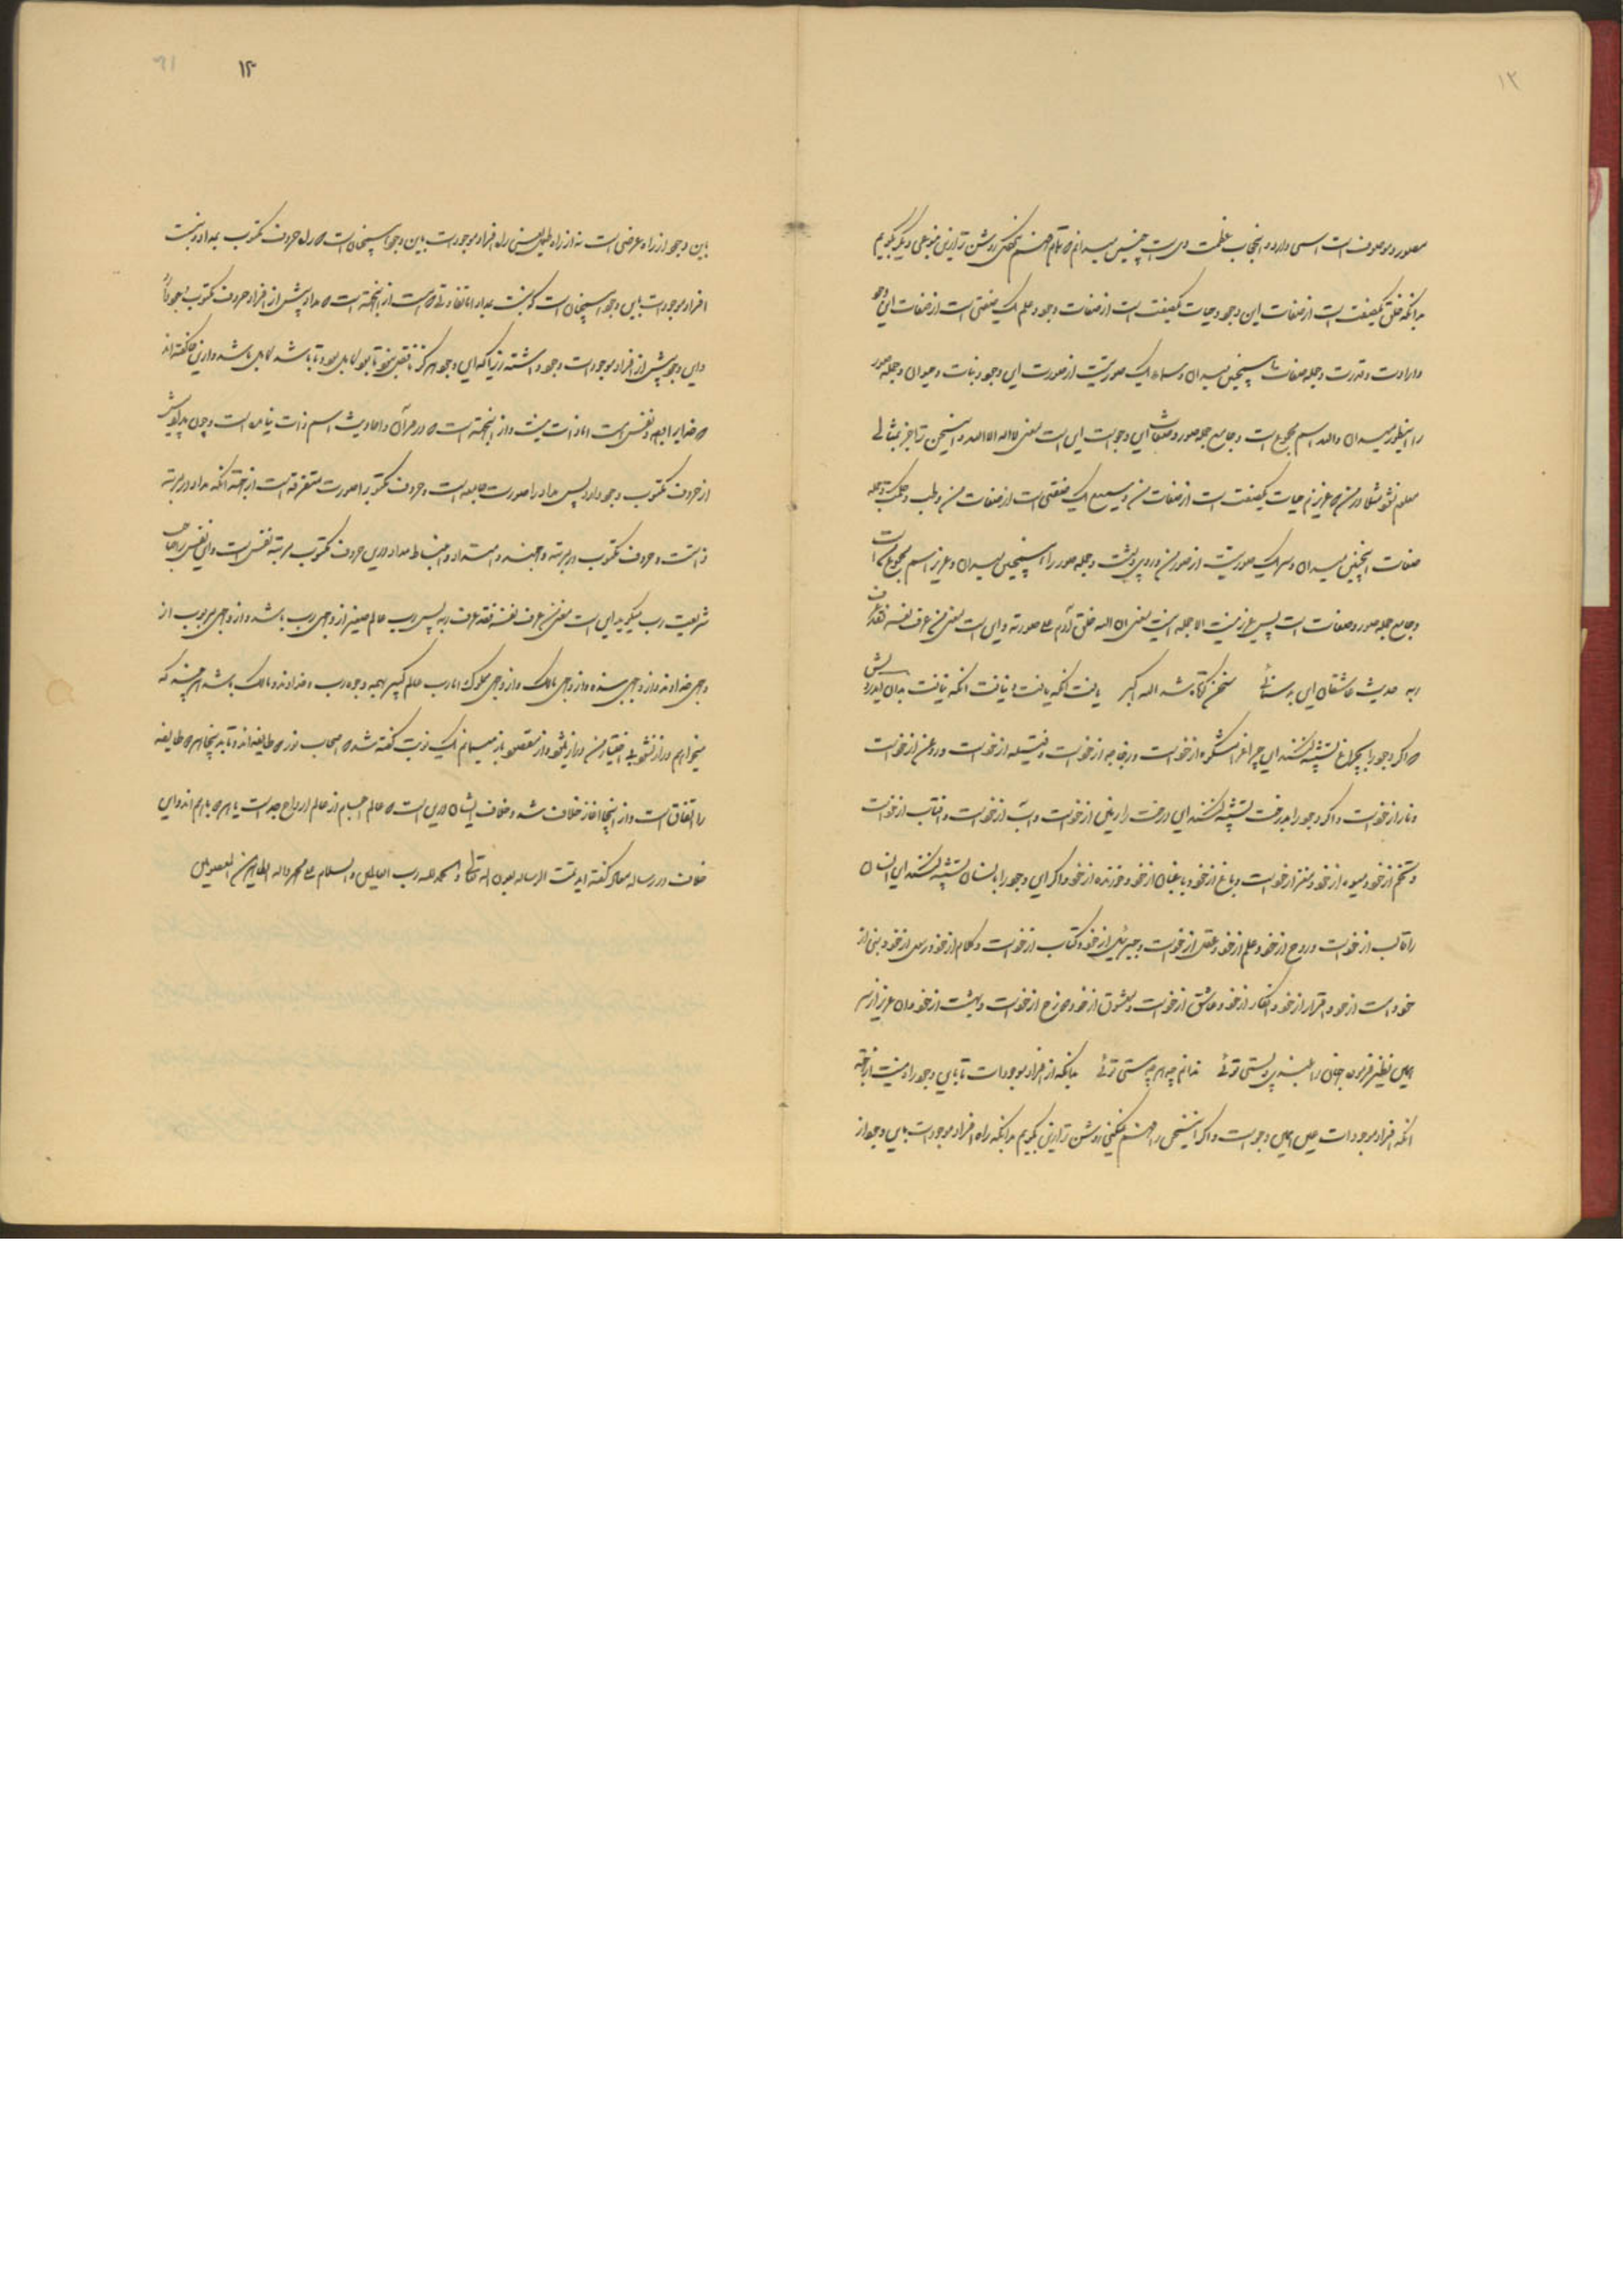 ۱۳
مصور و موصوف است اسمی دارد و اینجاب عظمت وی است چنین میدانم که تمام فهم نکردی روشن تر ازین بنوعی دیگر بگویم
بدانکه خلق یکصفت است از صفات این وجود و حیات یکصفت است از صفات وجود و علم یک صفتی است از صفات این وجود
و ارادت و قدرت و جمله صفات را همچنین میدان و سماء یک صورتیست از صورت این وجود و نبات و حیوان و جمله صور
را اینطور میدان و الله اسم مجموع است و جامع جمله صور و صفات این وجود است این است معنی لا اله الا الله و این سخن ترا جز بمثالی
معلوم نشود مثلا در من که عزیزم حیات یکصفت است از صفات من و سمیع یک صفتی است از صفات من و طب و حکمت و جمله
صفات اینچنین میدان و سر یک صورتیست از صور من و روی و پشت و جمله صور را همچنین میدان و عزیز اسم مجموع است
و جامع جمله صور و صفات است پس عزیز نیست الا جمله اینست معنی ان الله خلق آدم علی صورته و این است معنی من عرف نفسه فقد عرف
ربه حدیث عاشقان این بد سنائی سخن کوتاه شد الله اکبر یافت آنکه یافت و نیافت آنکه نیافت بدان ایدرویش
که اگر وجود را بچراغ تشبیه کنند این چراغ را مشکوة از خود است و زجاجه از خود است و فتیله از خود است و روغن از خود است
و نار از خود است و اگر وجود را بدرخت تشبیه کنند این درخت را زمین از خود است و آب از خود است و آفتاب از خود است
و تخم از خود و میوه از خود و مغز از خود است و باغ از خود و باغبان از خود و خورنده از خود و اگر این وجود را بانسان تشبیه کنند این انسان
را قالب از خود است و روح از خود و علم از خود و عقل از خود است و جبرئیل از خود و کتاب از خود است و کلام از خود و رسل از خود و نبی از
خود و امت از خود و اقرار از خود و انکار از خود و عاشق از خود است و معشوق از خود و دوزخ از خود است و بهشت از خود دان عزیز از سر
همین نظر فرمود جهان را بلندی و پستی توئی ندانم چه هر چه هستی توئی بدانکه از افراد موجودات تا باین وجود راه نیست از جهة
آنکه افراد موجودات عین همین وجود است و اگر این سخن را فهم نمیکنی روشن تر ازین بگویم بدانکه راه افراد موجودات باین وجود از
۱۴
باین وجود از راه عرضی است نه از راه طولی یعنی راه افراد موجودات باین وجود همچنان است که راه حروف مکتوب بمداد و نسبت
افراد موجودات باین وجود همچنان است که نسبت بمداد اما تفاوتی هست از اینجهت است که مداد پیش از افراد حروف مکتوب موجود
و این وجود پیش از افراد موجودات وجود داشته زیرا که این وجود هرگز ناقص نبود تا بود کامل بود و تا باشد کامل باشد و ازین جا گفته اند
که خدایرا وجه و نفس هست اما ذات نیست و از اینجهت است که در قرآن و احادیث اسم ذات نیامده است و چون مداد پیش
از حروف مکتوب وجود دارد پس مداد را صورت جامعه است و حروف مکتوب را صورت متفرقه است از جهة آنکه مداد در مرتبه
ذاتست و حروف مکتوب در مرتبه وجهند و امتداد و انبساط مداد درین حروف مکتوب مرتبه نفس است و این نفس را صاحب
شریعت رب میگوید این است معنی من عرف نفسه فقد عرف ربه پس رب عالم صغیر از وجهی رب باشد و از وجهی مربوب از
وجهی خداوند و از وجهی بنده و از وجهی مالک و از وجهی مملوک اما رب عالم کبیر بهمه وجوه رب و خداوند و مالک باشد هر چند که
میخواهم دراز نشود بی اختیار من دراز میشود و از مقصود باز میمانم یک نوبت گفته شد که اصحاب نور طایفه اند و تا بدینجا هر دو طایفه
را اتفاق است و از اینجا آغاز خلاف شد و خلاف ایشان درین است که عالم اجسام از عالم ارواح جداست یا هر دو باهم اند و این
خلاف در رساله معاد گفته آید تمت الرساله بعون الله تعالی و الحمد لله رب العالمین و السلام علی محمد و آله الطاهرین المعصومین